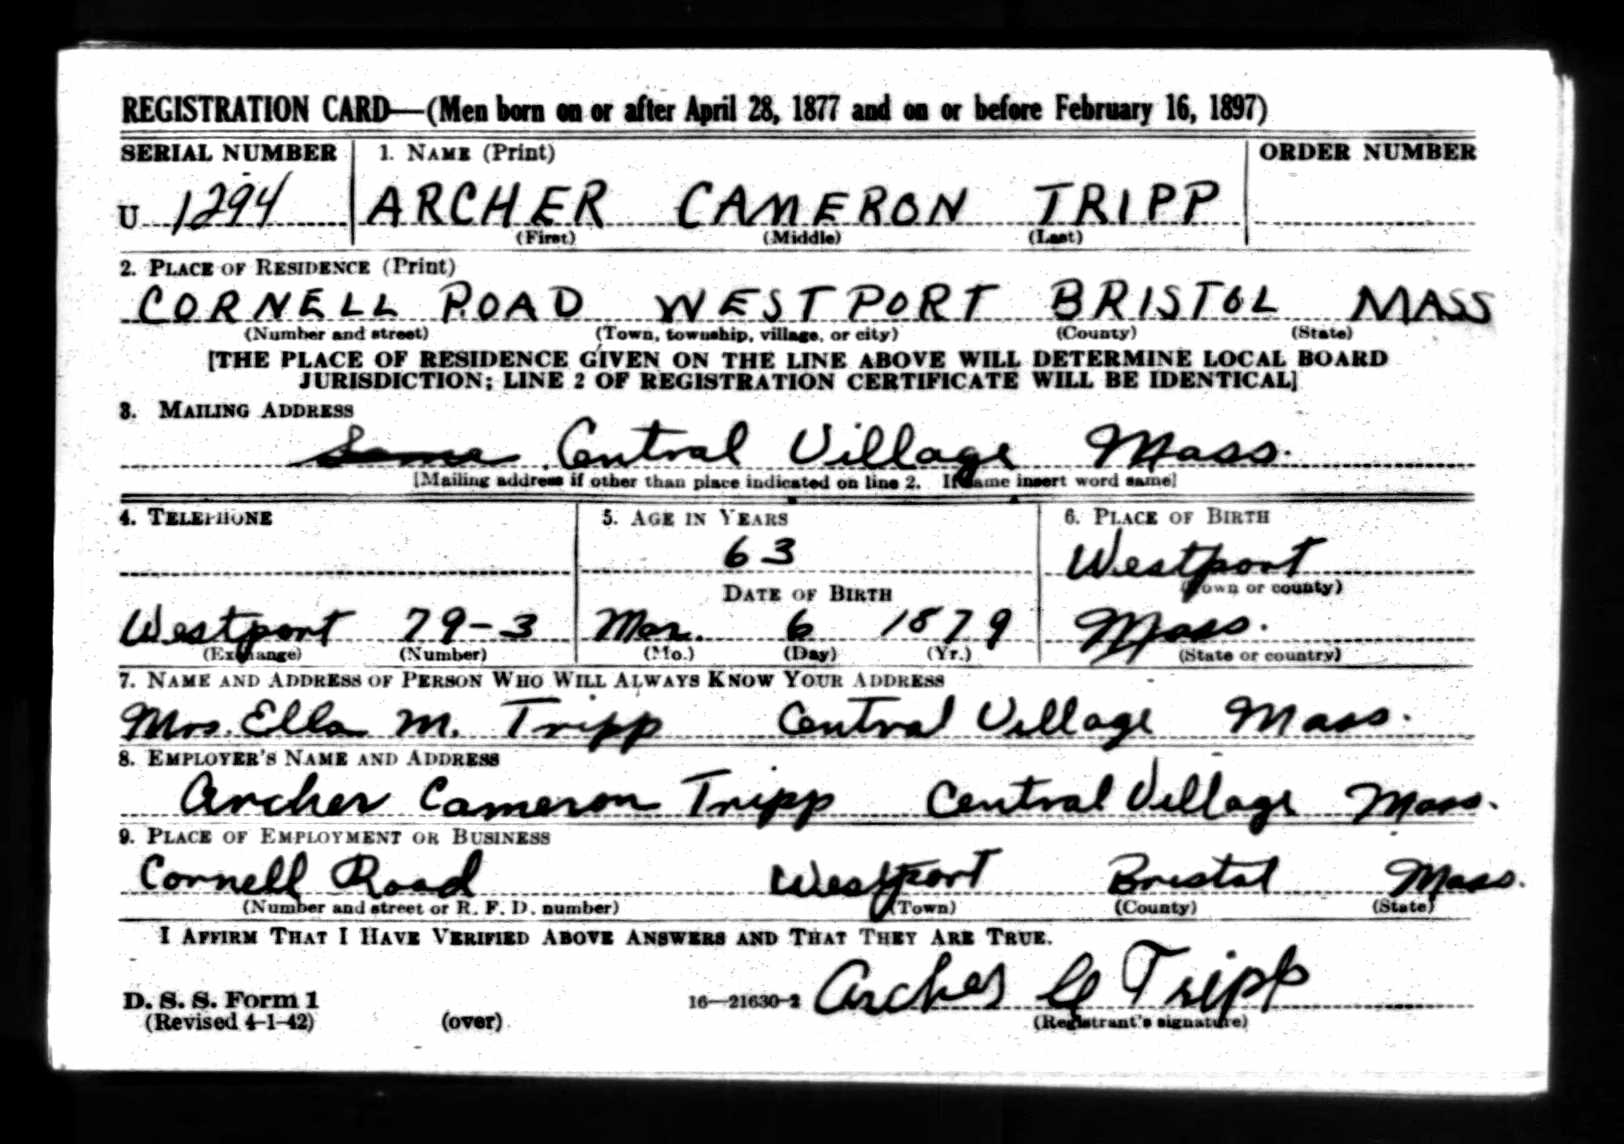 REGISTRATION CARD—(Men born on or after April 28, 1877 and on or before February 16, 1897)
SERIAL NUMBER 1. NAME (Print) ORDER NUMBER
U 1294 ARCHER CAMERON TRIPP
(First) (Middle) (Last)
2. PLACE OF RESIDENCE (Print)
CORNELL ROAD WESTPORT BRISTOL MASS
(Number and street) (Town, township, village, or city) (County) (State)
[THE PLACE OF RESIDENCE GIVEN ON THE LINE ABOVE WILL DETERMINE LOCAL BOARD
JURISDICTION; LINE 2 OF REGISTRATION CERTIFICATE WILL BE IDENTICAL]
3. MAILING ADDRESS
Same Central Village Mass.
[Mailing address if other than place indicated on line 2. If same insert word same]
4. TELEPHONE 5. AGE IN YEARS 6. PLACE OF BIRTH
63 Westport
DATE OF BIRTH (Town or county)
Westport 79-3 Mar. 6 1879 Mass.
(Exchange) (Number) (Mo.) (Day) (Yr.) (State or country)
7. NAME AND ADDRESS OF PERSON WHO WILL ALWAYS KNOW YOUR ADDRESS
Mrs. Ella M. Tripp Central Village Mass.
8. EMPLOYER'S NAME AND ADDRESS
Archer Cameron Tripp Central Village Mass.
9. PLACE OF EMPLOYMENT OR BUSINESS
Cornell Road Westport Bristol Mass.
(Number and street or R. F. D. number) (Town) (County) (State)
I AFFIRM THAT I HAVE VERIFIED ABOVE ANSWERS AND THAT THEY ARE TRUE.
D. S. S. Form 1 16—21630-2 Archer C Tripp
(Revised 4-1-42) (over) (Registrant's signature)